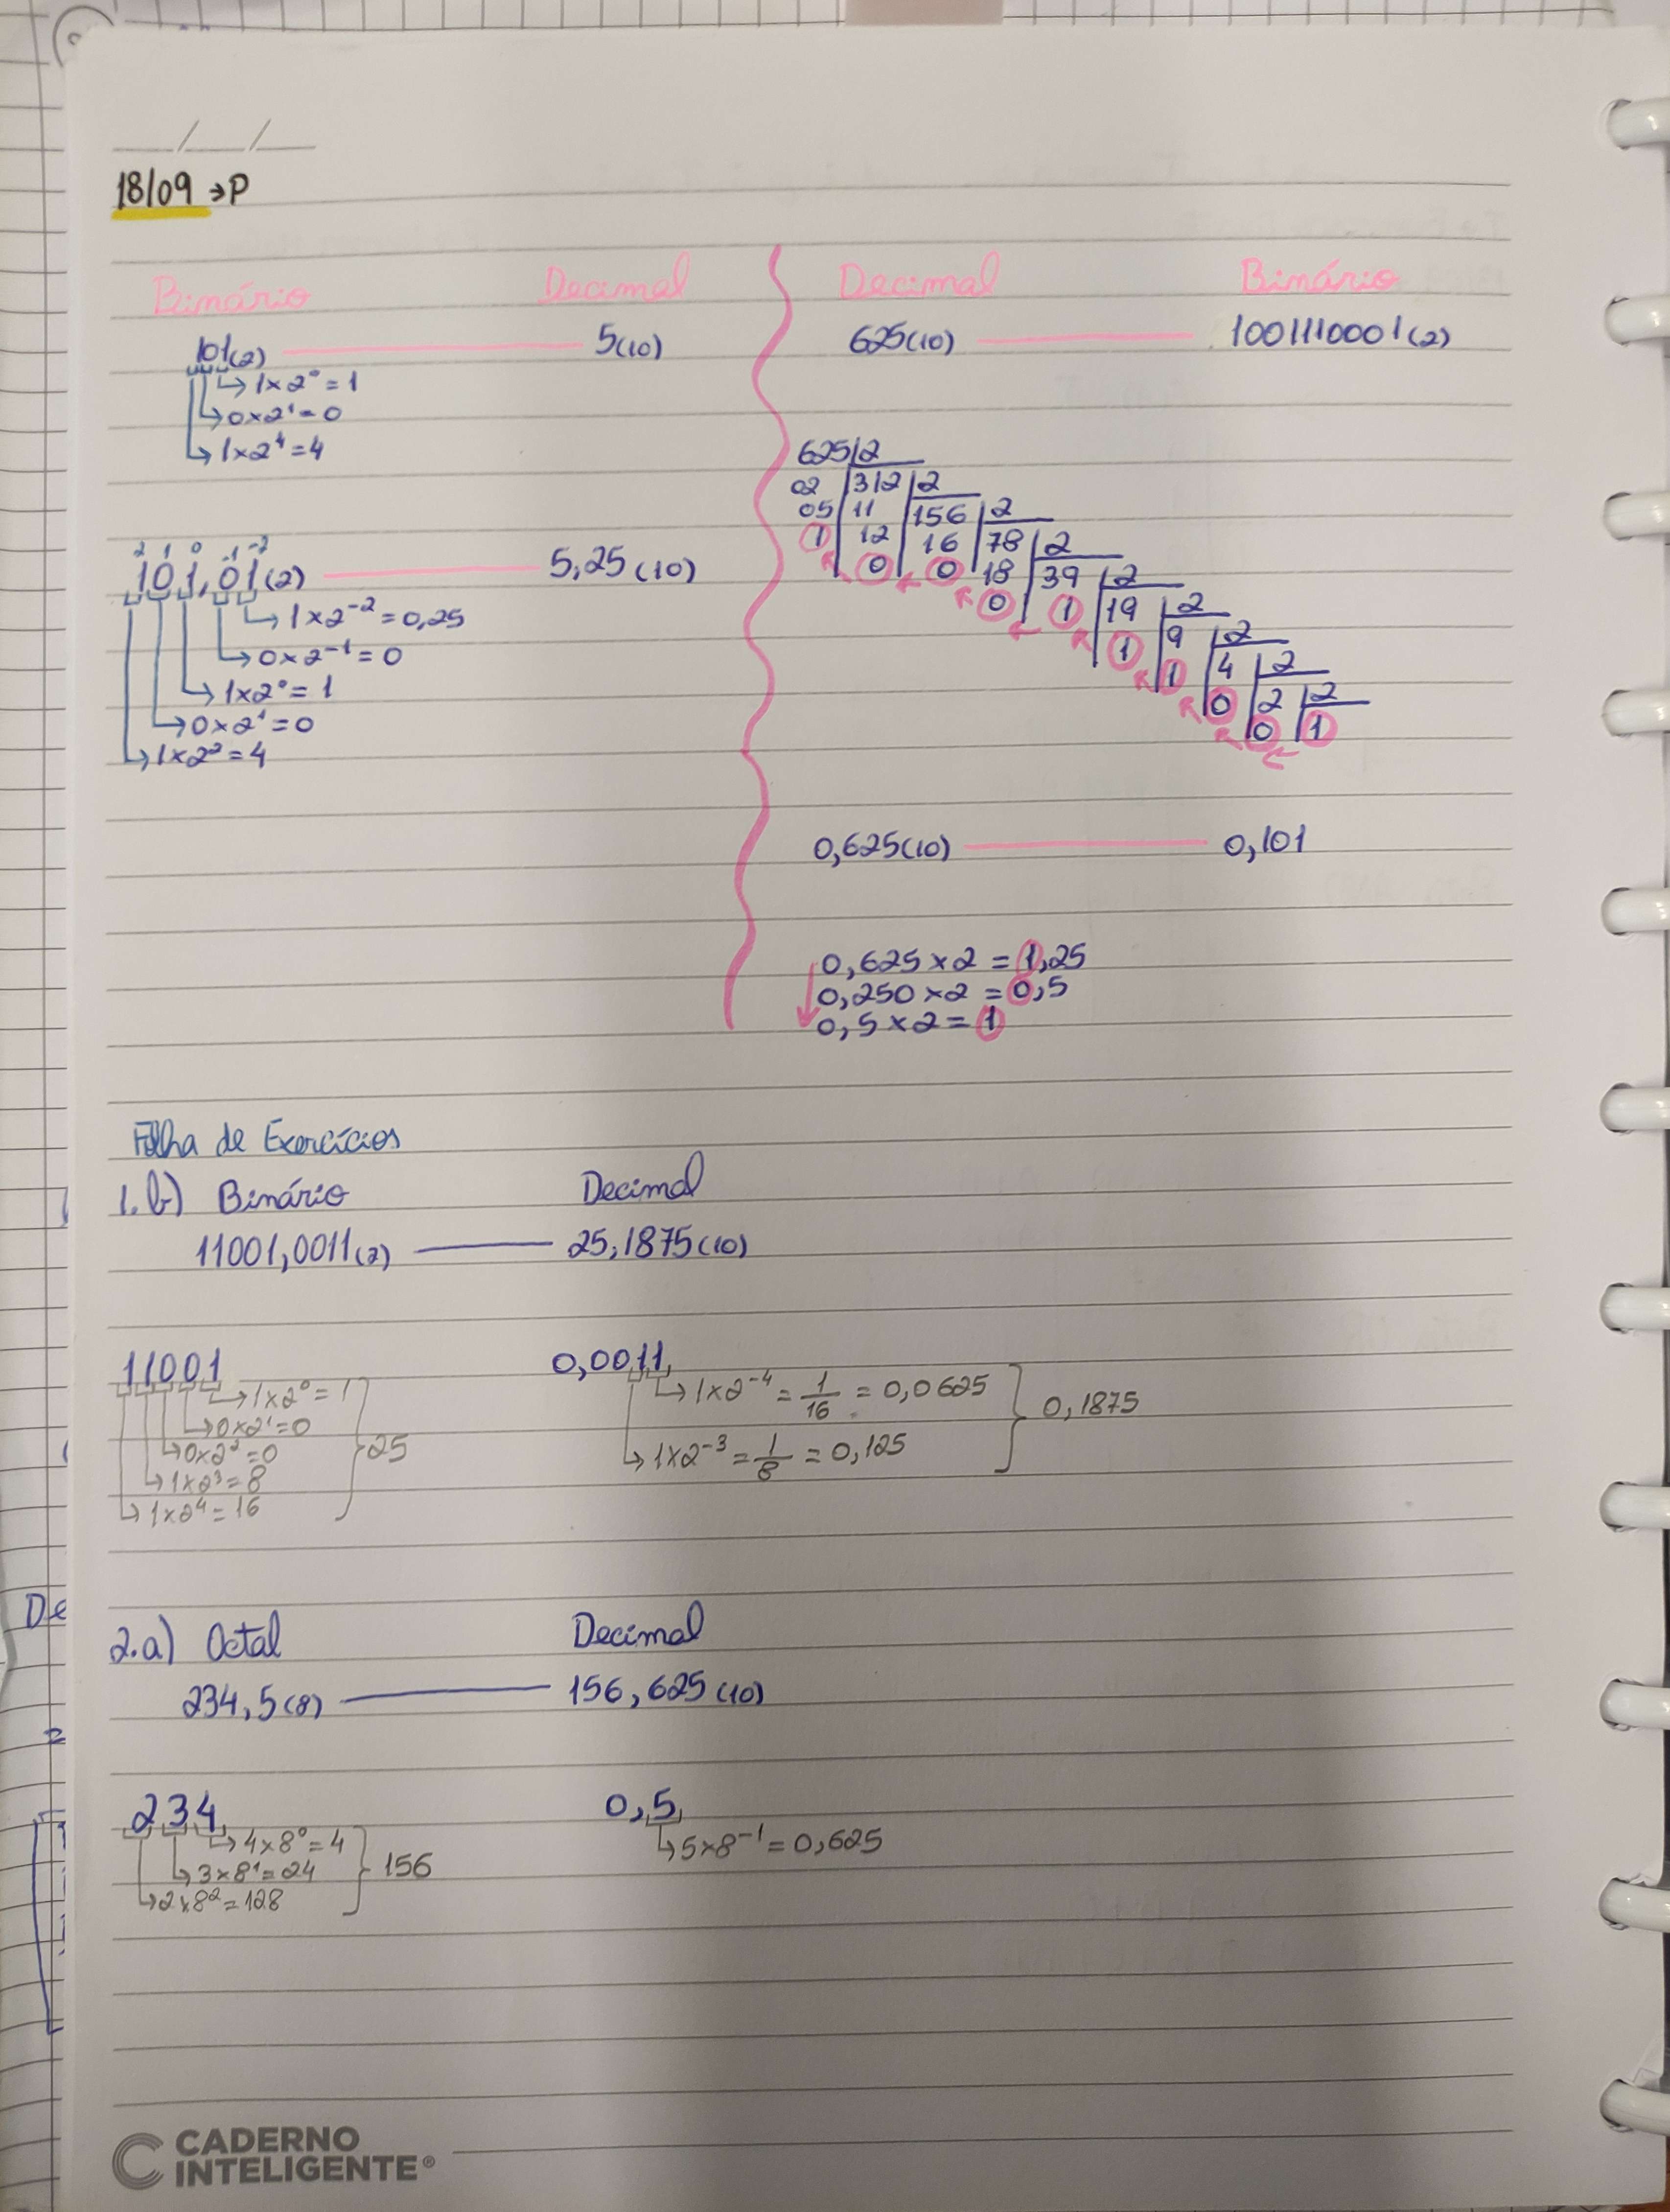 __/__/__
18/09 → P
Binário Decimal
101(2) 5(10)
→ 1×2⁰ = 1
→ 0×2¹ = 0
→ 1×2⁴ = 4
2 1 0 -1 -2
101,01(2) 5,25(10)
→ 1×2⁻² = 0,25
→ 0×2⁻¹ = 0
→ 1×2⁰ = 1
→ 0×2¹ = 0
→ 1×2² = 4
Decimal Binário
625(10) 1001110001(2)
625 2
02 312 2
05 11 156 2
1 12 16 78 2
0 0 18 39 2
0 1 19 2
1 9 2
1 4 2
0 2 2
0 1
0,625(10) 0,101
0,625 × 2 = 1,25
0,250 × 2 = 0,5
0,5 × 2 = 1
Folha de Exercícios
1.b) Binário Decimal
11001,0011(2) 25,1875(10)
11001
→ 1×2⁰ = 1
→ 0×2¹ = 0
→ 0×2² = 0
→ 1×2³ = 8
→ 1×2⁴ = 16
} 25
0,0011
→ 1×2⁻⁴ = 1/16 = 0,0625
→ 1×2⁻³ = 1/8 = 0,125
} 0,1875
2.a) Octal Decimal
234,5(8) 156,625(10)
234
→ 4×8⁰ = 4
→ 3×8¹ = 24
→ 2×8² = 128
} 156
0,5
→ 5×8⁻¹ = 0,625
De
CADERNO
INTELIGENTE®